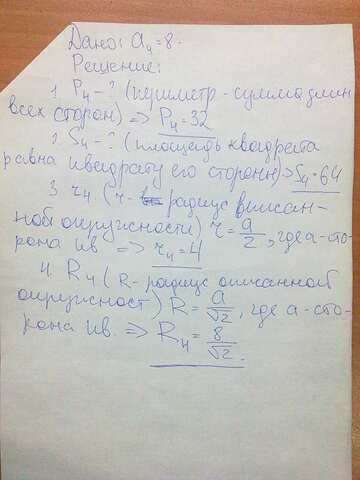 Дано: a₄=8.
Решение:
1. P₄-? (периметр - сумма длин
всех сторон) => P₄=32
2. S₄-? (площадь квадрата
равна квадрату его сторон) => S₄=64
3. r₄ (r - радиус вписан-
ной окружности) r = a/2, где a-сто-
рона кв => r₄=4
4. R₄ (R - радиус описанной
окружност) R = a/√2, где a-сто-
рона кв. => R₄ = 8/√2.